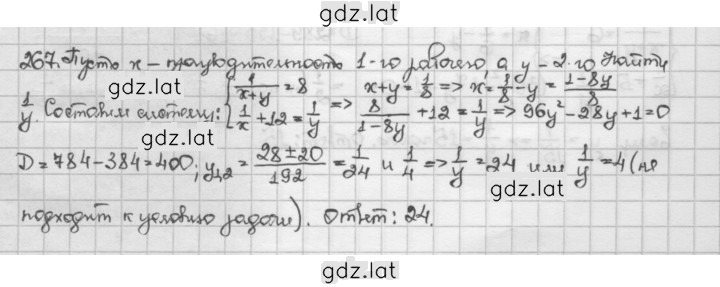 gdz.lat
267. Пусть x – производительность 1-го рабочего, а y – 2-го. Найти
1/y. Составим систему: { 1/(x+y) = 8; 1/x + 12 = 1/y => x+y = 1/8 => x = 1/8 - y = (1-8y)/8
8/(1-8y) + 12 = 1/y => 96y² - 28y + 1 = 0
gdz.lat
gdz.lat
D = 784 - 384 = 400; y₁,₂ = (28 ± 20)/192 = 1/24 и 1/4 => 1/y = 24 или 1/y = 4 (не
gdz.lat
подходит к условию задачи). Ответ: 24.
gdz.lat